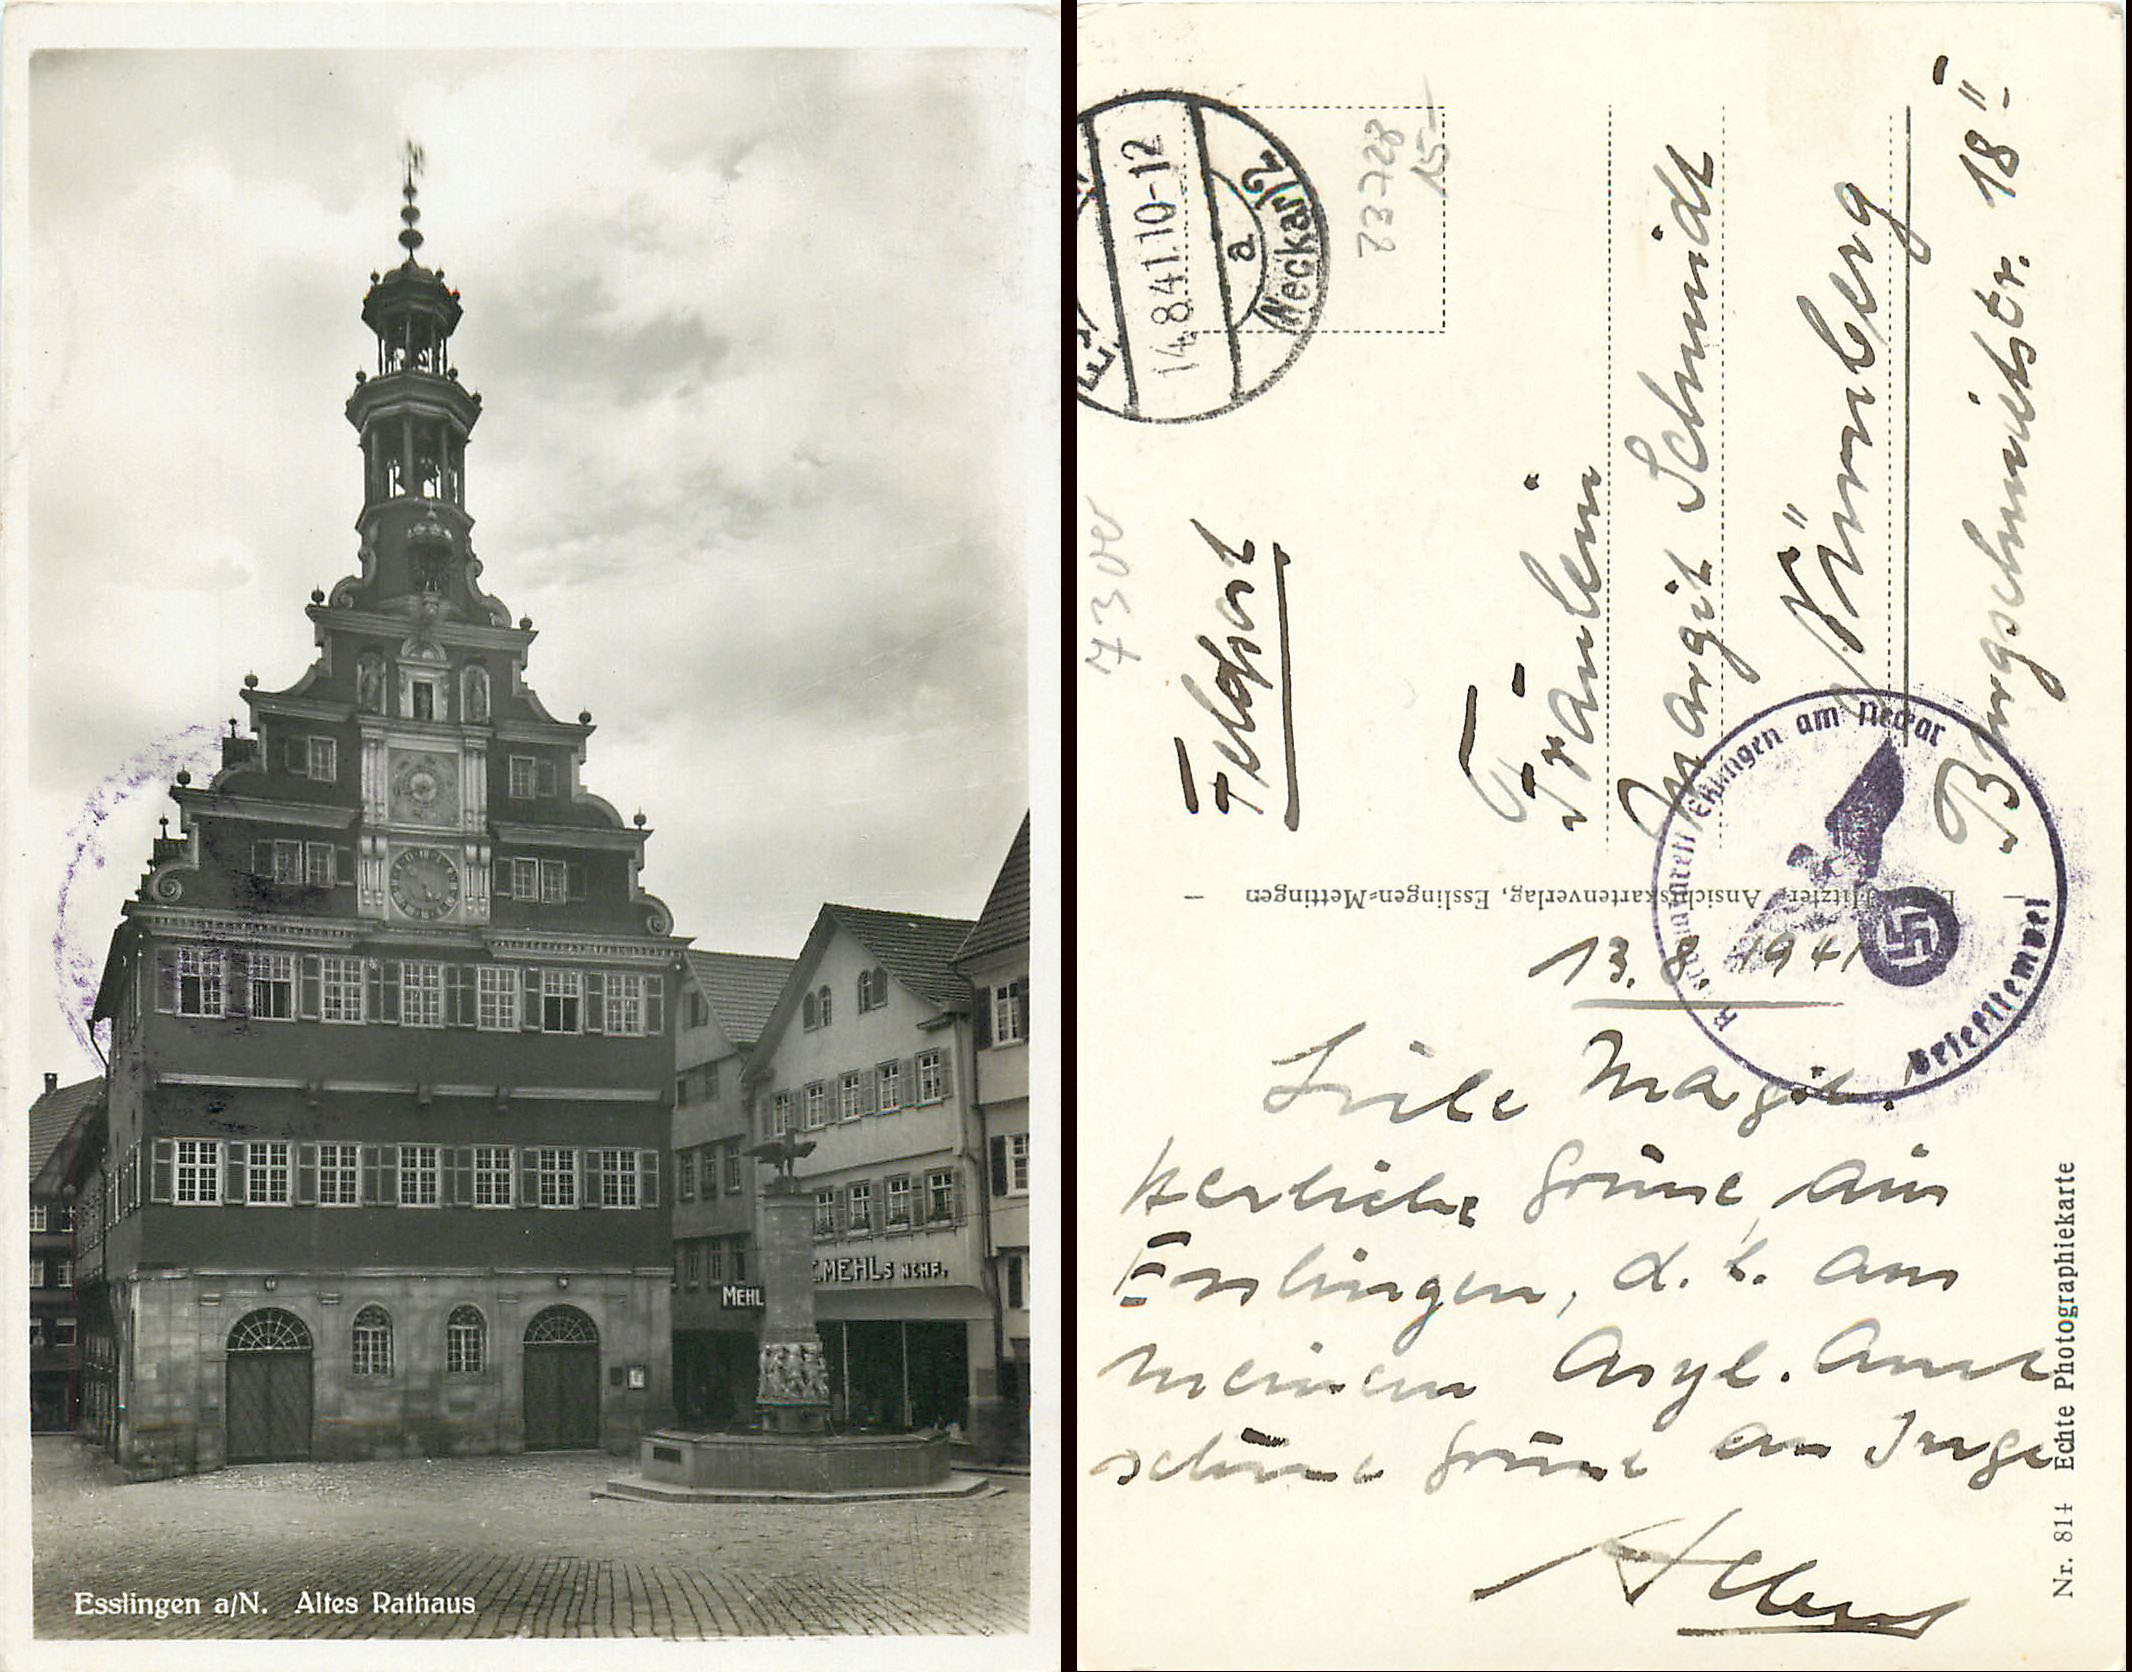 MEHL
E.MEHLS NCHF.
Esslingen a/N. Altes Rathaus
14.8.41.10-12
a
Neckar) 2
73728
15-
73 ver
Feldpost
Fräulein
Margit Schmidt
Nürnberg
Burgschmietstr. 18 II
Hitzler, Ansichtskartenverlag, Esslingen-Mettingen
Reservelazarett Eßlingen am Neckar
Briefstempel
13. 8. 1941
Liebe Magit!
Herzliche Grüsse aus
Esslingen, d. h. aus
meinem Asyl. Auch
schöne Grüsse an Inge
Nr. 814 Echte Photographiekarte